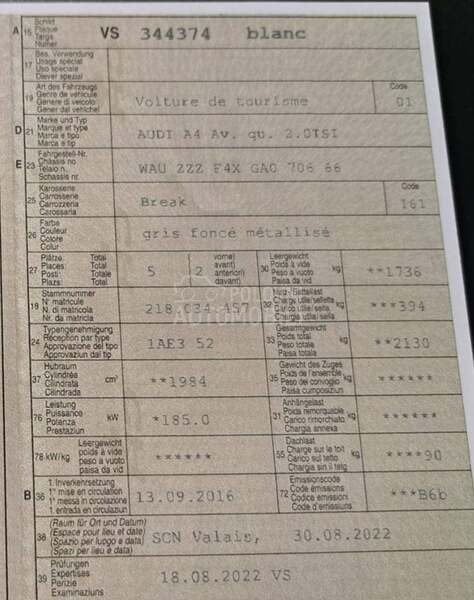 A 15 Schild Plaque Targa Numer VS 344374 blanc
17 Bes. Verwendung Usage spécial Uso speciale Diever spezial
19 Art des Fahrzeugs Genre de véhicule Genere di veicolo Gener dal vehichel Voiture de tourisme Code 01
D 21 Marke und Typ Marque et type Marca e tipo Marca e tip AUDI A4 Av. qu. 2.0TSI
E 23 Fahrgestell-Nr. Châssis no Telaio n. Schassis nr. WAU ZZZ F4X GA0 706 66
25 Karosserie Carrosserie Carrozzeria Carossaria Break Code 161
26 Farbe Couleur Colore Colur gris foncé métallisé
27 Plätze: Total Places: Total Posti: Totale Plazs: Total 5 2 vorne) avant) anteriori) davant) 30 Leergewicht Poids à vide Peso a vuoto Paisa da vid kg **1736
18 Stammnummer N° matricule N. di matricola Nr. da matricla 218 034 457 32 kg ***394
24 Typengenehmigung Réception par type Approvazione del tipo Approvaziun dal tip 1AE3 52 33 Gesamtgewicht Poids total Peso totale Paisa totala kg **2130
37 Hubraum Cylindrée Cilindrata Cilindrada cm³ **1984 35 Gewicht des Zuges Poids de l'ensemble Peso del convoglio Paisa cumposiziun kg ******
76 Leistung Puissance Potenza Prestaziun kW *185.0 31 Anhängelast Poids remorquable Carico rimorchiato Chargia annexa kg ******
78 kW/kg Leergewicht poids à vide peso a vuoto paisa da vid ****** 55 Dachlast Charge sur le toit Carico sul tetto Chargia sin il tetg kg ****90
B 36 1. Inverkehrsetzung 1re mise en circulation 1a messa in circolazione 1. entrada en circulaziun 13.09.2016 72 Emissionscode Code émissions Codice emissioni Code d'emissiuns ***B6b
38 (Raum für Ort und Datum) (Espace pour lieu et date) (Spazio per luogo e data) (Spazi per lieu e data) SCN Valais, 30.08.2022
39 Prüfungen Expertises Perizie Examinaziuns 18.08.2022 VS